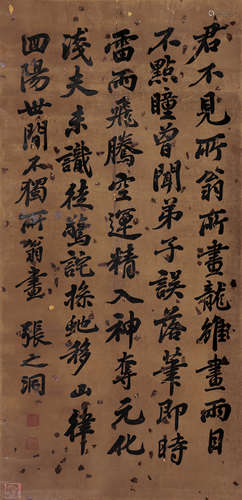 君不見所翁所畫龍雖畫兩目
不點瞳曾聞弟子誤落筆即時
雷雨飛騰空運精入神奪元化
淺夫未識徒驚詫操虵移山律
囬陽世間不獨所翁畫 張之洞